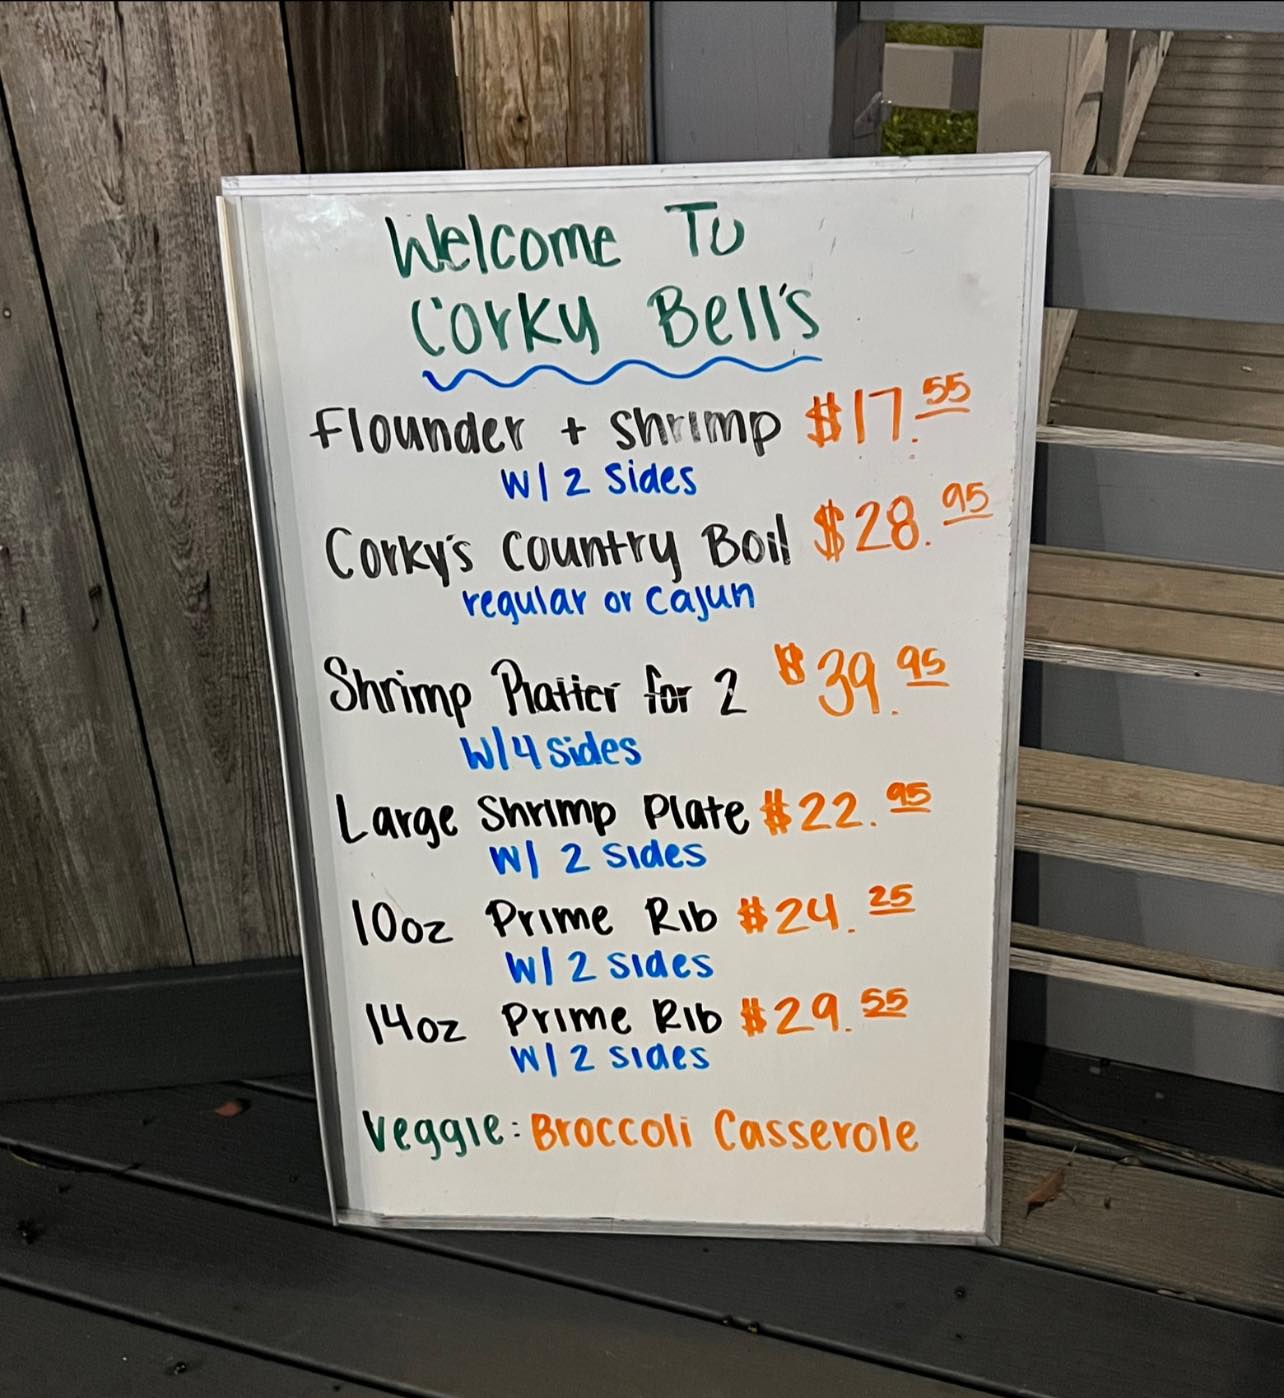 Welcome To
Corky Bell's
Flounder + Shrimp $17.55
w/ 2 Sides
Corky's Country Boil $28.95
regular or cajun
Shrimp Platter for 2 $39.95
w/4 Sides
Large Shrimp Plate $22.95
w/ 2 sides
10oz Prime Rib $24.25
w/ 2 sides
14oz Prime Rib $29.55
w/ 2 sides
Veggie: Broccoli Casserole